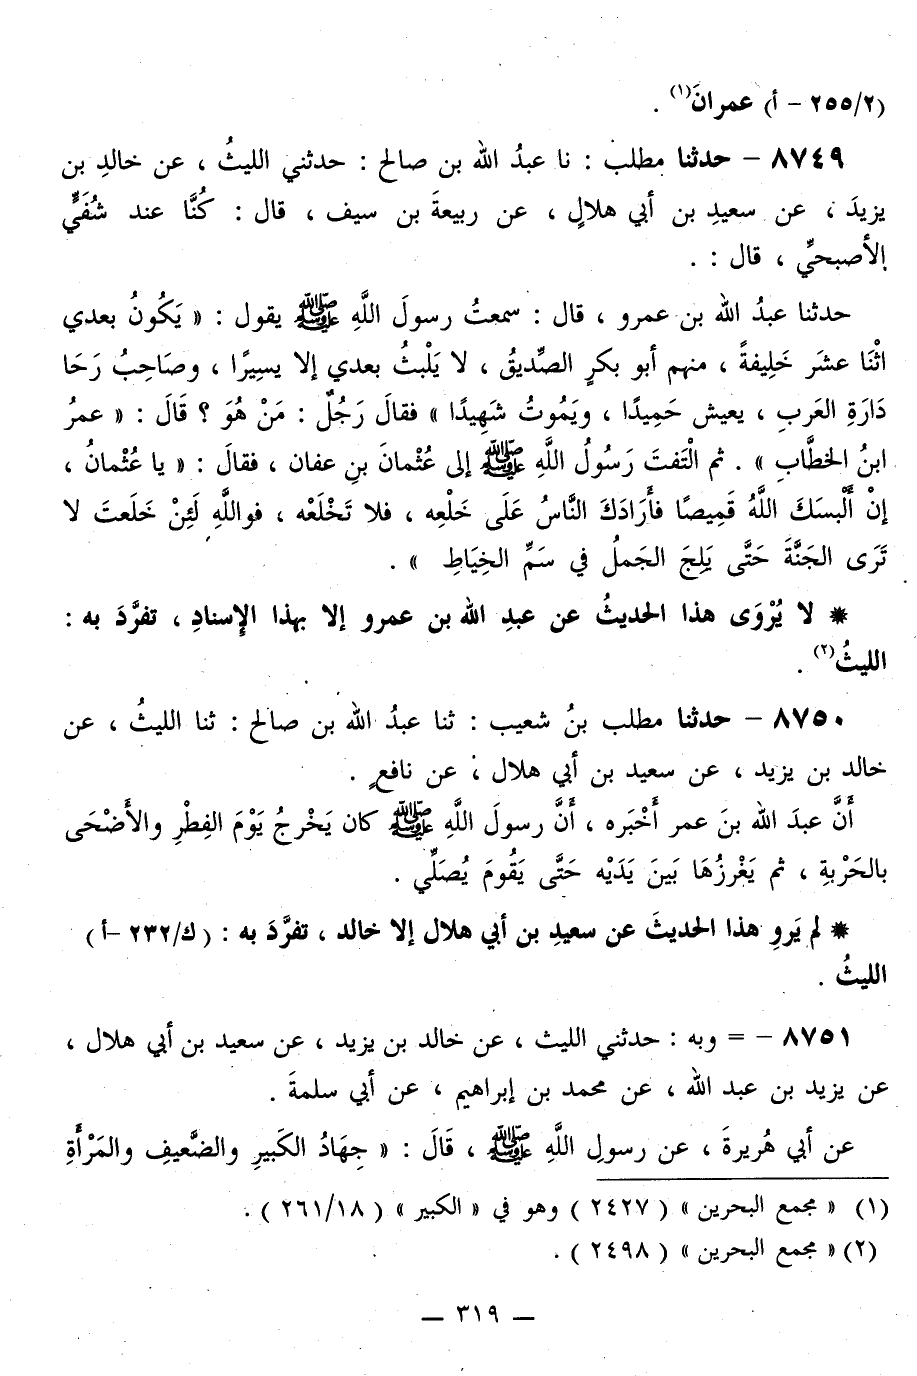 (٢/٢٥٥ – أ) عمرانَ(١) .
٨٧٤٩ – حدثنا مطلب : نا عبدُ الله بن صالح : حدثني الليثُ ، عن خالدِ بن
يزيدَ ، عن سعيدِ بن أبي هلالٍ ، عن ربيعةَ بن سيف ، قال : كُنَّا عند شُفَيٍّ
الأصبحيِّ ، قال : .
حدثنا عبدُ الله بن عمرو ، قال : سمعتُ رسولَ اللَّهِ ﷺ يقول : « يَكُونُ بعدي
اثْنَا عشَرَ خَلِيفةً ، منهم أبو بكرٍ الصِّديقُ ، لا يَلْبثُ بعدي إلا يسِيرًا ، وصَاحِبُ رَحَا
دَارَةِ العَربِ ، يعيش حَمِيدًا ، ويَمُوتُ شَهِيدًا » فقالَ رَجُلٌ : مَنْ هُوَ ؟ قَالَ : « عمرُ
ابنُ الخطَّابِ » . ثم الْتَفتَ رَسُولُ اللَّهِ ﷺ إلى عُثْمانَ بنِ عفان ، فقالَ : « يا عُثْمانُ ،
إنْ أَلْبسَكَ اللَّهُ قَمِيصًا فأَرَادَكَ النَّاسُ عَلَى خَلْعِه ، فلا تَخْلَعْه ، فواللَّهِ لَئِنْ خَلَعتَ لا
تَرَى الجَنَّةَ حَتَّى يَلِجَ الجَملُ في سَمِّ الخِيَاطِ » .
* لا يُرْوَى هذا الحديثُ عن عبدِ الله بن عمرو إلا بهذا الإسنادِ ، تفرَّدَ به :
الليثُ(٢) .
٨٧٥٠ – حدثنا مطلب بنُ شعيب : ثنا عبدُ الله بن صالح : ثنا الليثُ ، عن
خالد بن يزيد ، عن سعيد بن أبي هلال ، عن نافعٍ .
أَنَّ عبدَ الله بنَ عمر أَخْبَره ، أَنَّ رسولَ اللَّهِ ﷺ كان يَخْرجُ يَوْمَ الفِطْرِ والأَضْحَى
بالحَرْبةِ ، ثم يَغْرزُهَا بَينَ يَدَيْه حَتَّى يَقُومَ يُصَلِّي .
* لم يَروِ هذا الحديثَ عن سعيدِ بن أبي هلال إلا خالد ، تفرَّدَ به : (ك/٢٣٢ –أ)
الليثُ .
٨٧٥١ – = وبه : حدثني الليث ، عن خالد بن يزيد ، عن سعيد بن أبي هلال ،
عن يزيد بن عبد الله ، عن محمد بن إبراهيم ، عن أبي سلمةَ .
عن أبي هُريرةَ ، عن رسولِ اللَّهِ ﷺ ، قَالَ : « جِهَادُ الكَبيرِ والضَّعيفِ والمَرْأَةِ
(١) « مجمع البحرين » ( ٢٤٢٧ ) وهو في « الكبير » ( ٢٦١/١٨ ) .
(٢) « مجمع البحرين » ( ٢٤٩٨ ) .
— ٣١٩ —